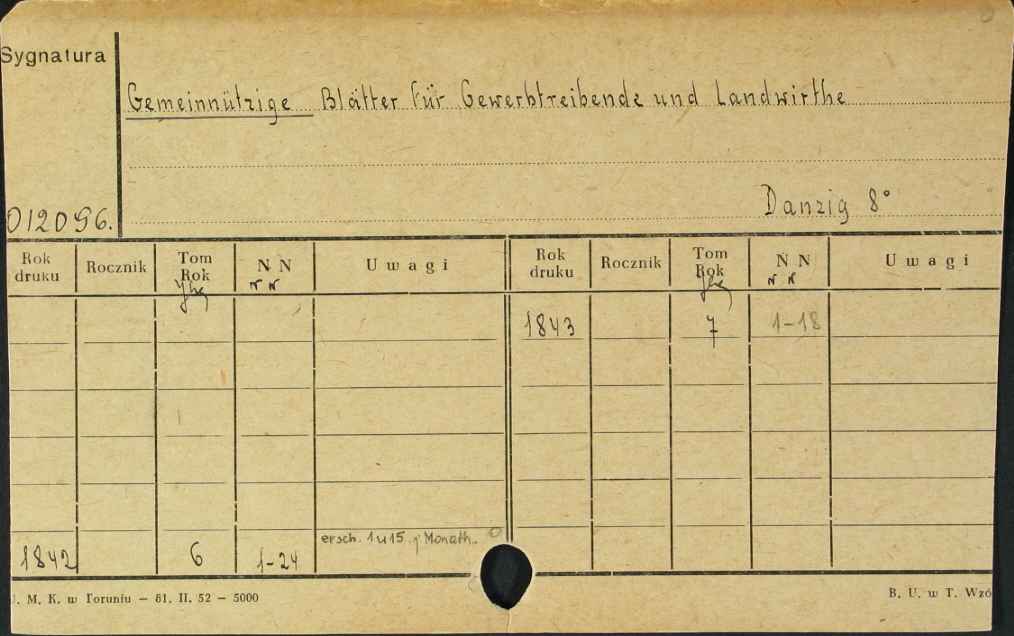 Sygnatura
Gemeinnützige Blätter für Gewerbtreibende und Landwirthe
Danzig 8°
012096.
Rok druku Rocznik Tom Rok Jhg N N Uwagi Rok druku Rocznik Tom Rok Jhg N N Uwagi
1843 7 1-18
ersch. 1 u 15. j. Monath.
1842 6 1-24
U. M. K. w Toruniu — 81. II. 52 — 5000
B. U. w T. Wzó